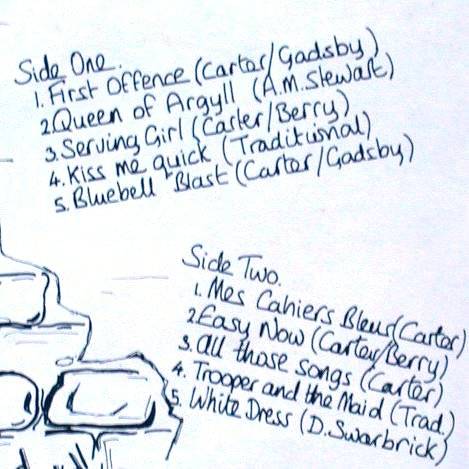 Side One.
1. First Offence (Carter/Gadsby)
2. Queen of Argyll (A.M. Stewart)
3. Serving Girl (Carter/Berry)
4. Kiss me quick (Traditional)
5. Bluebell Blast (Carter/Gadsby)
Side Two.
1. Mes Cahiers Bleus (Carter)
2. Easy Now (Carter/Berry)
3. all those songs (Carter)
4. Trooper and the Maid (Trad.)
5. White Dress (D. Swarbrick)